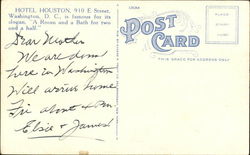 HOTEL HOUSTON, 910 E Street,
Washington, D. C., is famous for its
slogan, "A Room and a Bath for two
and a half."
POST
CARD
THIS SPACE FOR ADDRESS ONLY
Dear Mother
We are down
here in Washington
Will arrive home
Fri about
Elsie + James